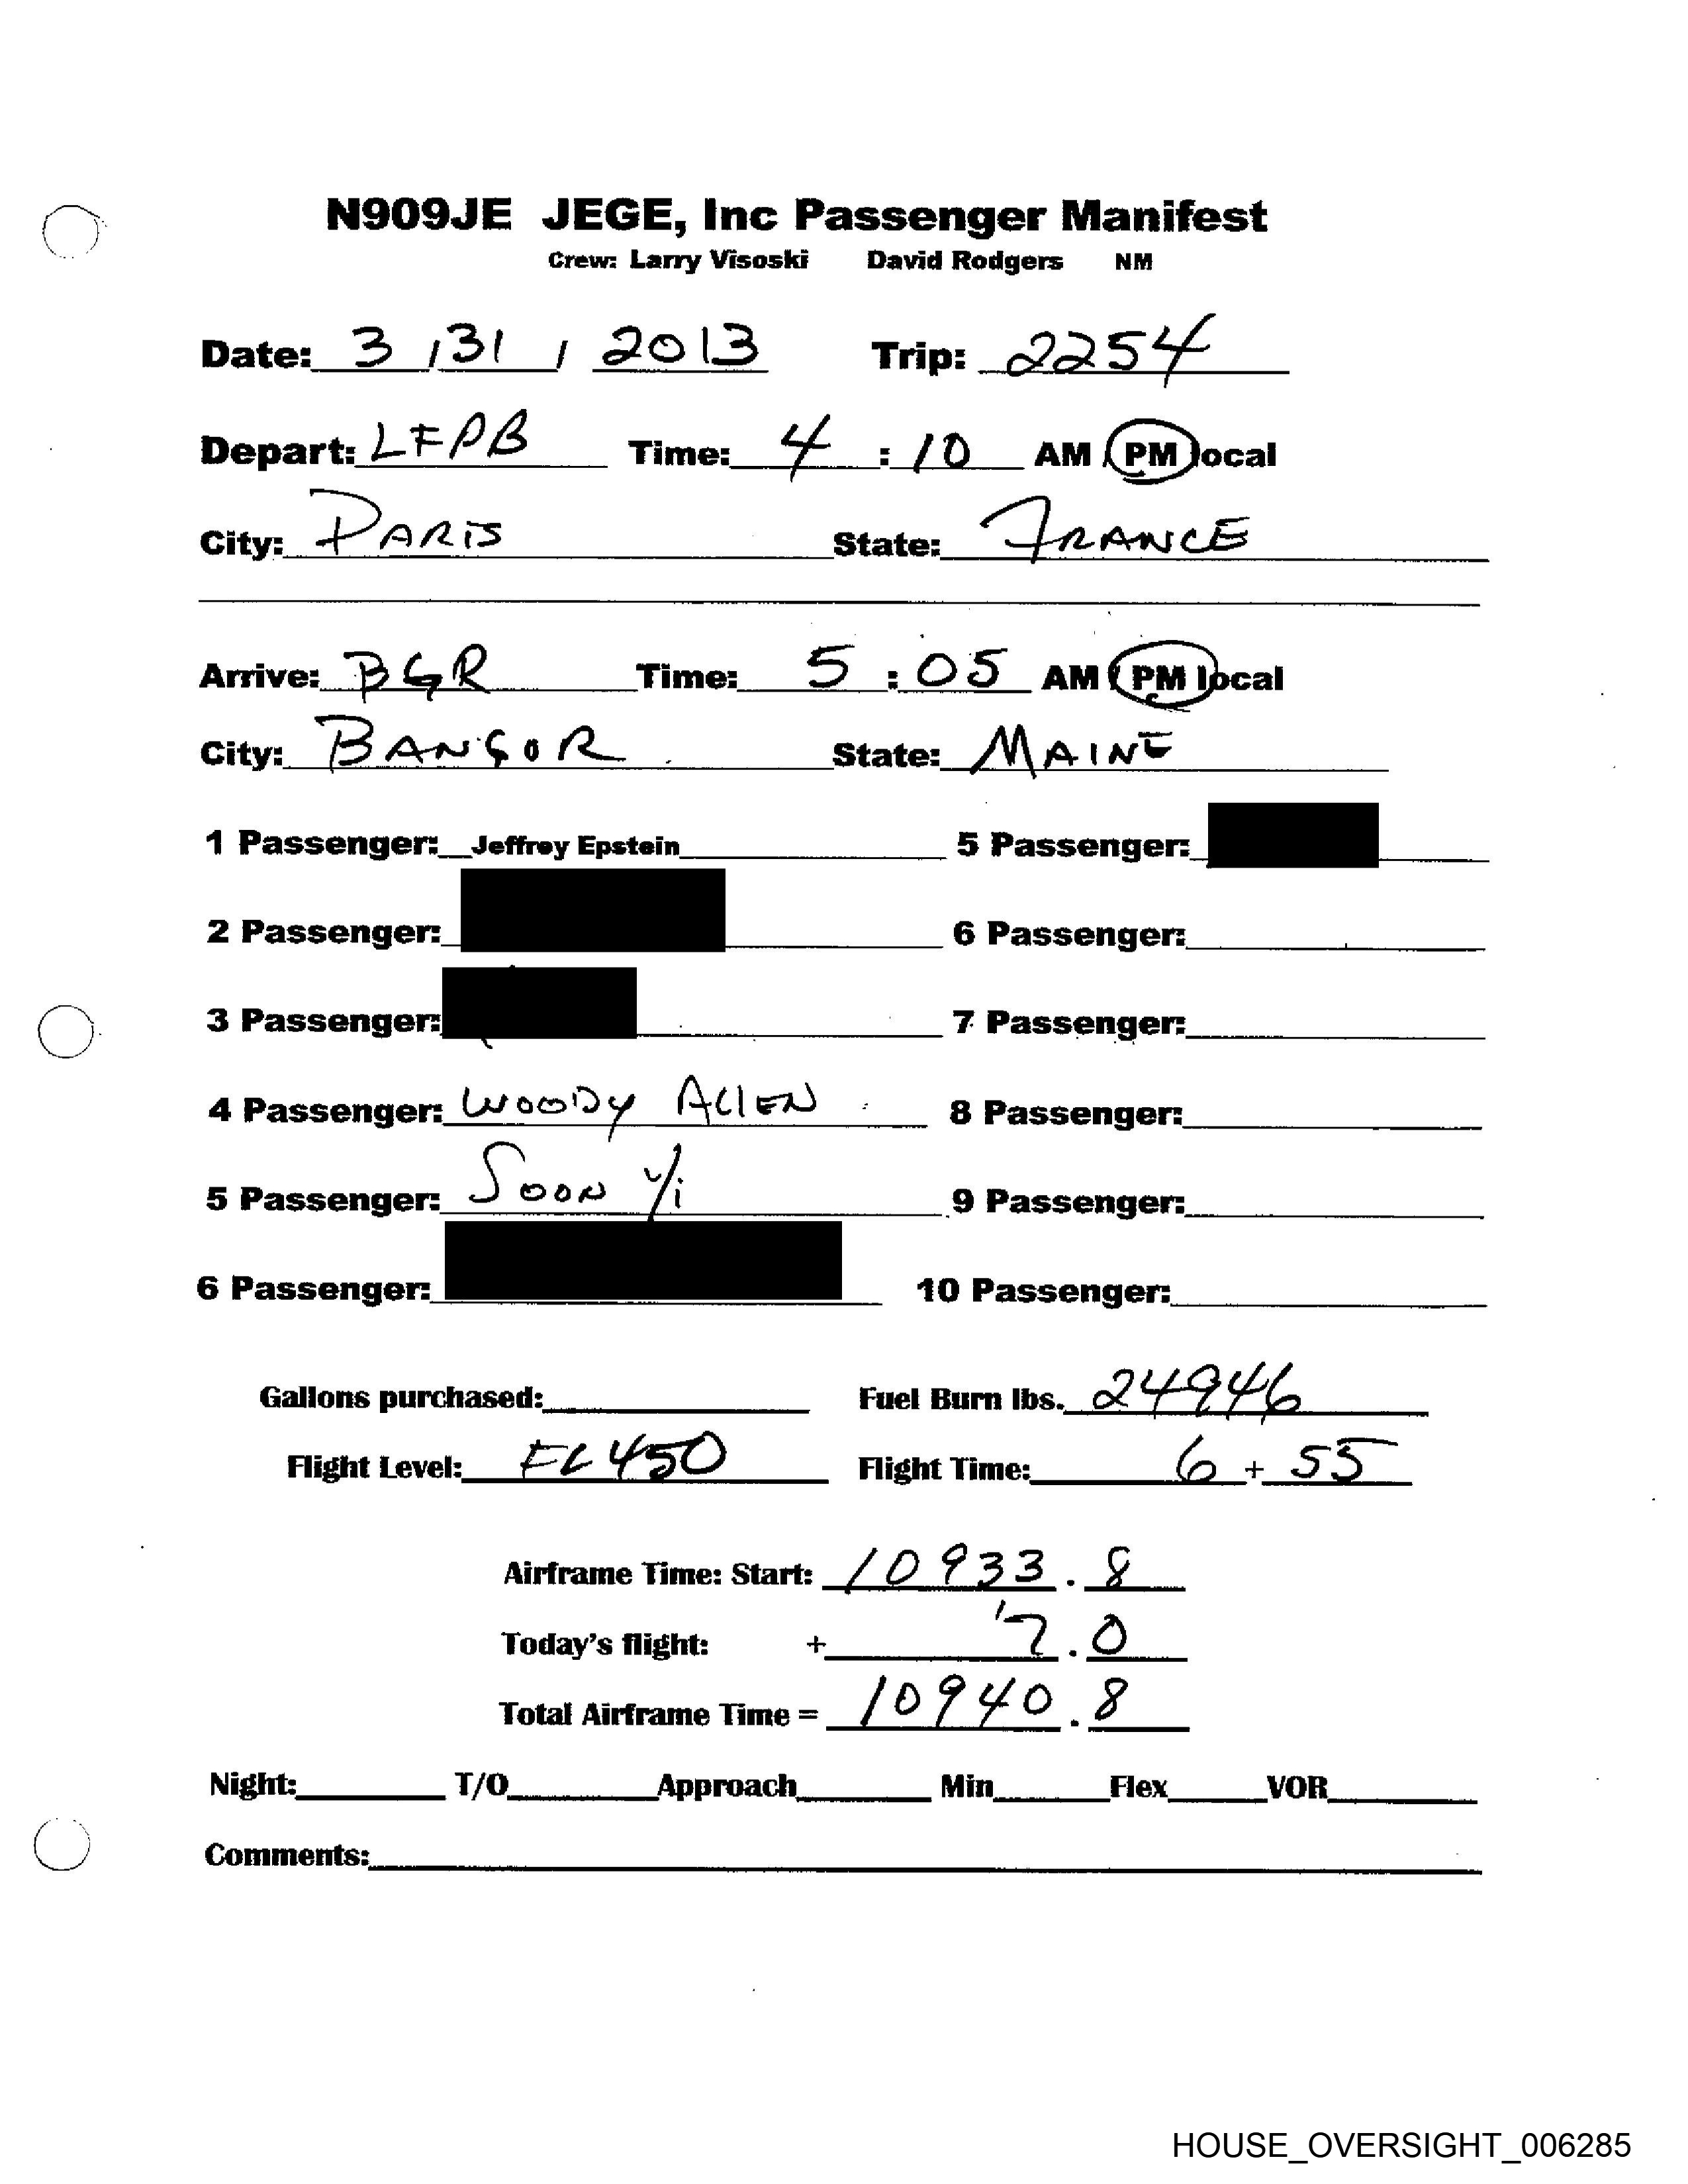 N909JE JEGE, Inc Passenger Manifest
Crew: Larry Visoski David Rodgers NM
Date: 3 / 31 / 2013 Trip: 2254
Depart: LFPB Time: 4 : 10 AM / PM local
City: PARIS State: FRANCE
Arrive: BGR Time: 5 : 05 AM / PM local
City: BANGOR State: MAINE
1 Passenger: Jeffrey Epstein 5 Passenger:
2 Passenger: 6 Passenger:
3 Passenger: 7 Passenger:
4 Passenger: WOODY AllEN 8 Passenger:
5 Passenger: SOON Yi 9 Passenger:
6 Passenger: 10 Passenger:
Gallons purchased: Fuel Burn lbs. 24946
Flight Level: FL 450 Flight Time: 6 + 55
Airframe Time: Start: 10933.8
Today's flight: + 7.0
Total Airframe Time = 10940.8
Night: T/O Approach Min Flex VOR
Comments:
HOUSE_OVERSIGHT_006285